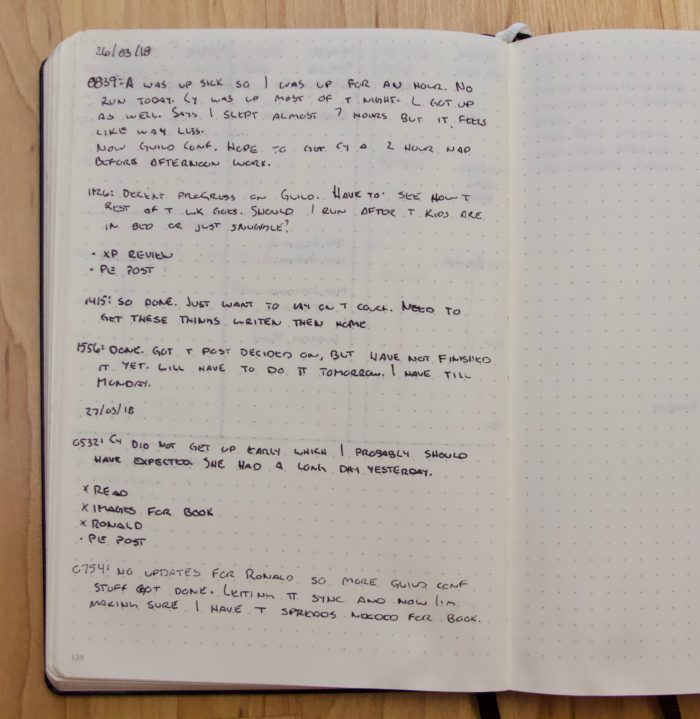 26/03/18
0839: A WAS UP SICK SO I WAS UP FOR AN HOUR. NO
RUN TODAY. CY WAS UP MOST OF T NIGHT. L GOT UP
AS WELL. SAYS I SLEPT ALMOST 7 HOURS BUT IT FEELS
LIKE WAY LESS.
NOW GUILD CONF. HOPE TO GET CY A 2 HOUR NAP
BEFORE AFTERNOON WORK.
1126: DECENT PROGRESS ON GUILD. HAVE TO SEE HOW T
REST OF T WK GOES. SHOULD I RUN AFTER T KIDS ARE
IN BED OR JUST SNUGGLE?
• XP REVIEW
• PE POST
1415: SO DONE. JUST WANT TO LAY ON T COUCH. NEED TO
GET THESE THINGS WRITEN THEN HOME
1556: DONE. GOT T POST DECIDED ON, BUT HAVE NOT FINISHED
IT YET. WILL HAVE TO DO IT TOMORROW. I HAVE TILL
MONDAY.
27/03/18
0532: CY DID NOT GET UP EARLY WHICH I PROBABLY SHOULD
HAVE EXPECTED. SHE HAD A LONG DAY YESTERDAY.
× READ
× IMAGES FOR BOOK
× RONALD
• PE POST
0754: NO UPDATES FOR RONALD SO MORE GUILD CONF
STUFF GOT DONE. LETTING IT SYNC AND NOW I'M
MAKING SURE I HAVE T SPREADS NEEDED FOR BOOK.
129